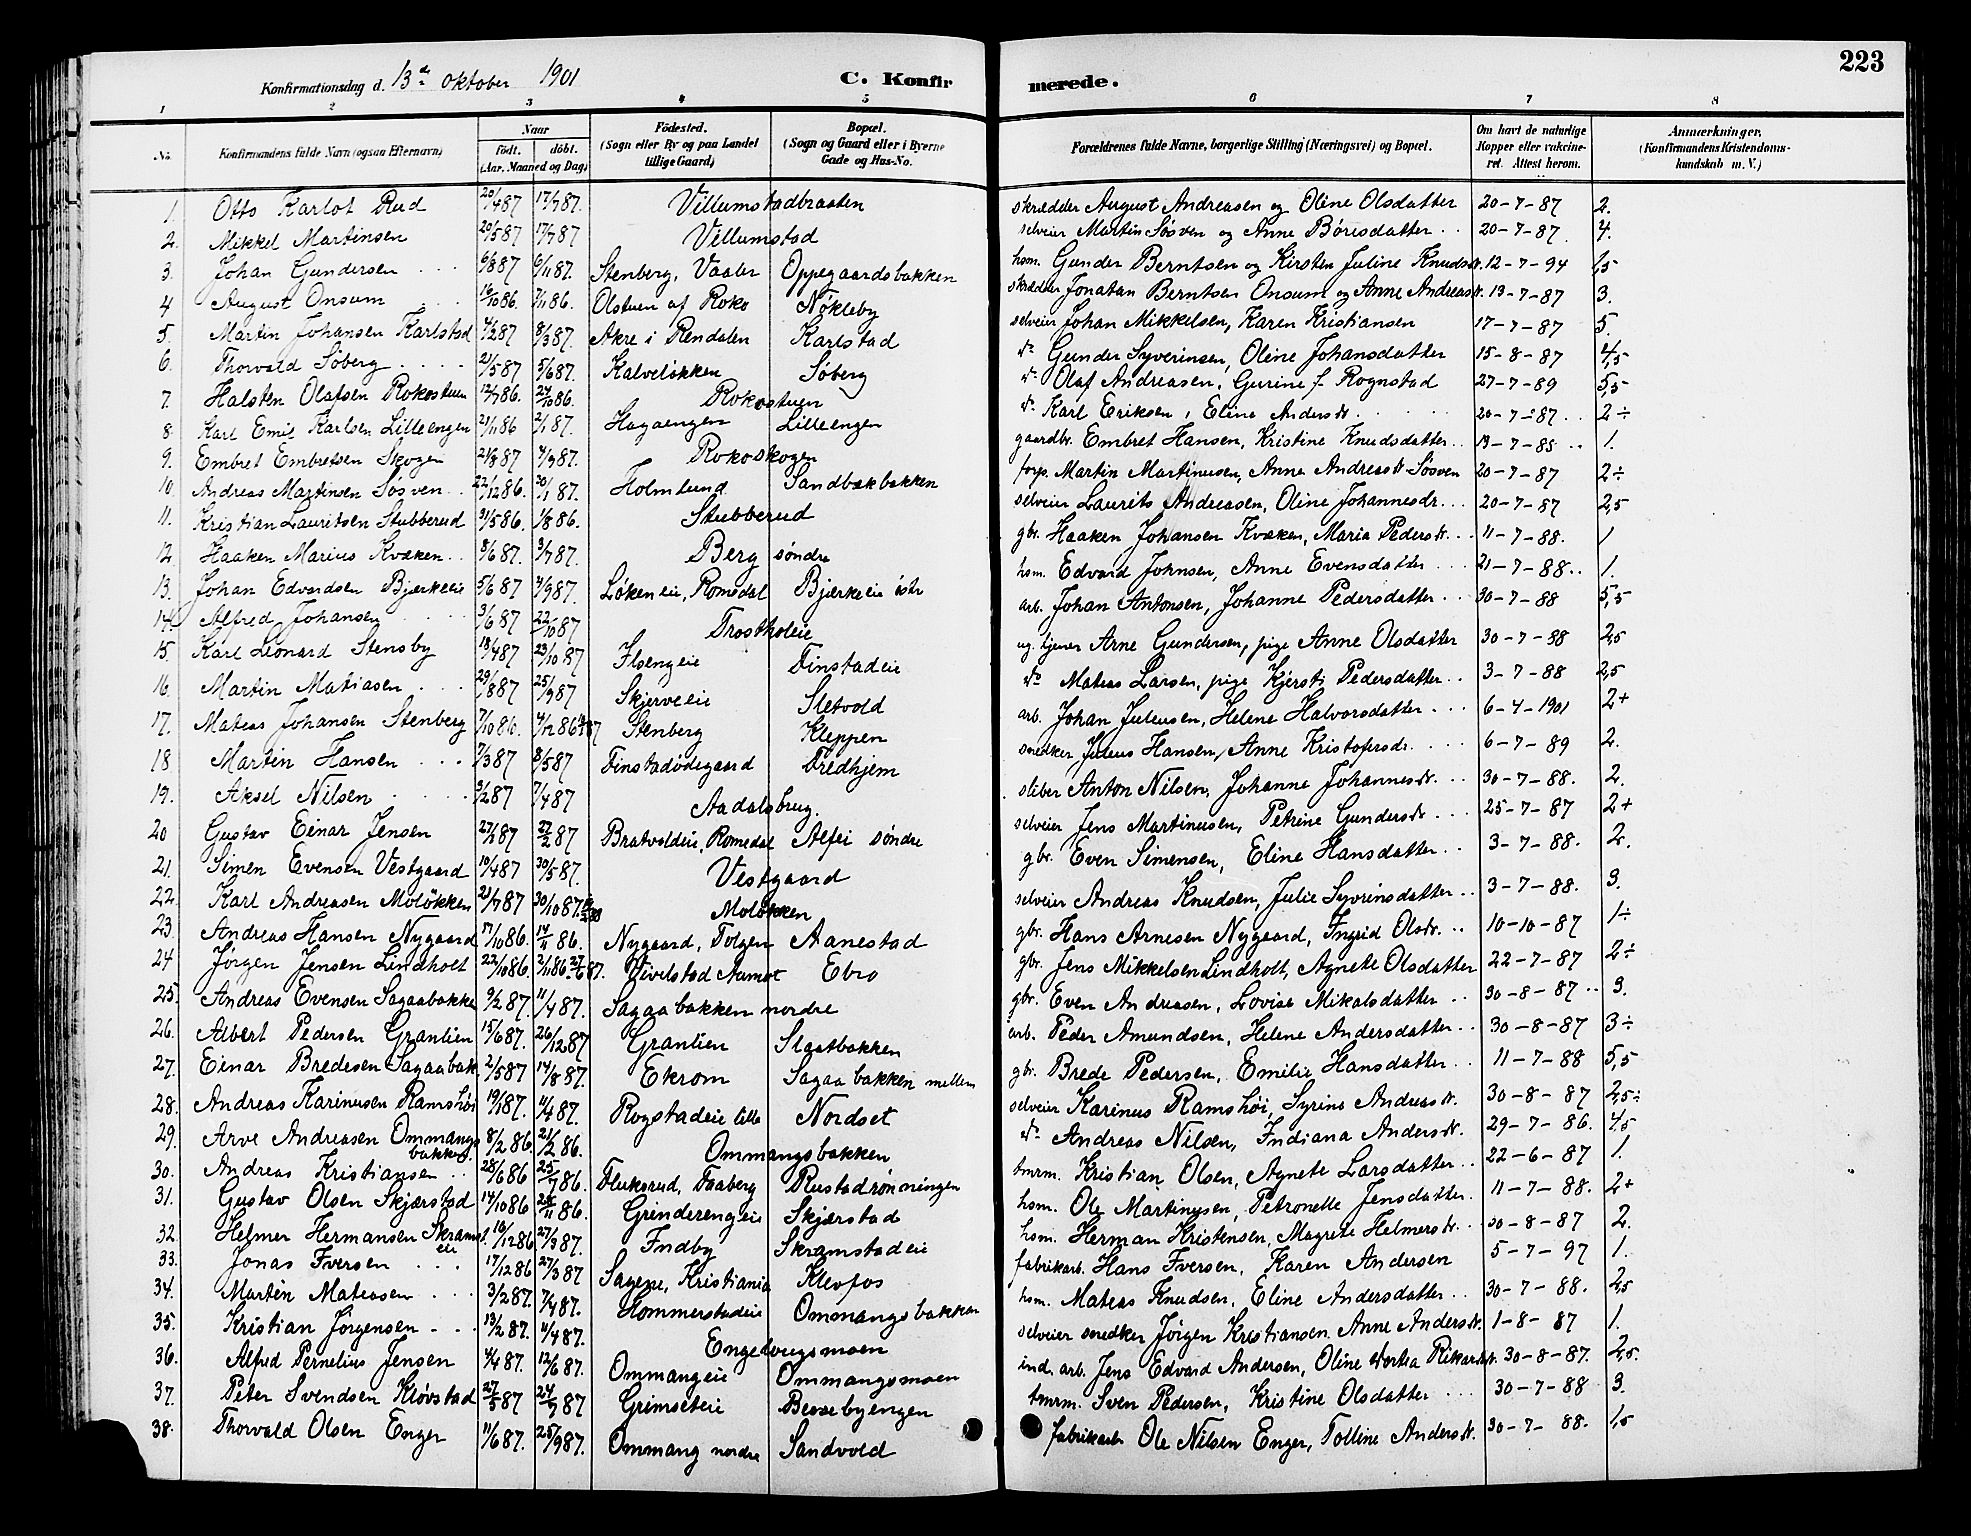 223
Konfirmationsdag d. 13de Oktober 1901 C. Konfirmerede.
1 2 3 4 5 6 7 8
No. Konfirmandens fulde Navn (ogsaa Efternavn) Naar født. døbt. (Aar, Maaned og Dag) Fødested. (Sogn eller By og paa Landet tillige Gaard) Bopæl. (Sogn og Gaard eller i Byerne Gade og Hus-No. Forældrenes fulde Navne, borgerlige Stilling (Næringsvei) og Bopæl. Om havt de naturlige Kopper eller vakcineret. Attest herom. Anmærkninger. (Konfirmandens Kristendomskundskab m. V.)
1. Otto Karlot Rud 20/4 87 17/7 87. Villumstadbraaten skrædder August Andreasen og Oline Olsdatter 20-7-87 2.
2. Mikkel Martinsen 20/5 87 17/7 87 Villumstad selveier Martin Søsven og Anne Børisdatter 20-7-87. 4.
3. Johan Gundersen 6/8 87 6/11 87. Stenberg, Vaaler Oppegaardsbakken hsm. Gunder Berntsen og Kirsten Juline Knudsdr. 12-7-94 1,5
4 August Onsum 16/10 86. 7/11 86. Olstuen af Roko Nøkleby skrædder Jonatan Berntsen Onsum og Anne Andreasdr. 13-7-87 3.
5. Martin Johansen Karlstad 4/2 87 8/3 87. Akre i Rendalen Karlstad selveier Johan Mikkelsen, Karen Kristiansen 17-7-87 5.
6. Thorvald Søberg 21/5 87 5/6 87. Kalveløkken Søberg do Gunder Syverinsen, Oline Johansdatter 15-8-87 4,5
7. Halsten Olafsen Rokostuen 12/7 86. 24/10 86. Rokostuen do Olaf Andreasen, Gurine f. Rognstad 27-7-89 5,5
8. Karl Emil Karlsen Lilleengen 21/11 86 2/1 87. Hagaengen Lilleengen do Karl Eriksen, Eline Andersdr. 20-7-87 2÷
9. Embret Embretsen Skogen 21/3 87 4/7 87. Rokoskogen gaardbr. Embret Hansen, Kristine Knudsdatter 13-7-85 1.
10. Andreas Martinsen Søsven 22/12 86. 20/1 87. Holmlund Sandbækbakken forp. Martin Martinusen, Anne Andreasdr Søsven 20-7-87 2÷
11. Kristian Lauritsen Stubberud 31/5 86. 1/8 86. Stubberud selveier Laurits Andreasen, Oline Johannesdr. 20-7-87 2,5
12 Haaken Marius Kvæken 8/6 87. 3/7 87. Berg søndre gbr. Haaken Johansen Kvæken, Maria Pedersdr. 11-7-88. 1
13. Johan Edvardsen Bjerkeeie 5/6 87 4/9 87. Løkeneie, Romedal Bjerkeeie østr hsm. Edvard Johnsen, Anne Evensdatter 21-7-88 1.
14. Alfred Johansen 3/6 87 22/10 87 Frostholeie arb. Johan Antonsen, Johanne Pedersdatter 30-7-88 5,5
15. Karl Leonard Stensby 18/4 87 23/10 87 Ilsengeie Finstadeie ug. tjener Arne Gundersen, pige Anne Olsdatter 30-7-88 2,5
16. Martin Matiasen 29/8 87 25/9 87 Skjerveeie Sletvold do Mateas Larsen, pige Kjersti Pedersdatter 3-7-88 2,5
17. Mateas Johansen Stenberg 7/10 86. 4/12 86 Stenberg Kleppen arb. Johan Juliusen, Helene Halvorsdatter 6-4-1901 2+
18 Martin Hansen 7/3 87 8/5 87 Finstadødegaard Fredhjem snedker Julius Hansen, Anne Kristofersdr. 6-7-89 2.
19. Aksel Nilsen 9/2 87 7/4 87 Aadalsbrug. sliber Anton Nilsen, Johanne Johannesdr. 30-7-88. 2.
20 Gustav Einar Jensen 27/1 87 27/2 87 Bratvoldeie, Romedal Alfei søndre selveier Jens Martinusen, Petrine Gundersdr. 25-7-87 2+
21. Simen Evensen Vestgaard 10/4 87 30/5 87. Vestgaard gbr. Even Simensen, Eline Hansdatter 3-7-88. 2.
22. Karl Andreasen Moløkken 21/7 87 30/10 87. Moløkken selveier Andreas Knudsen, Julie Syverinsdatter 3-7-88. 3.
23. Andreas Hansen Nygaard 17/10 86. 14/11 86. Nygaard, Tolgen Aanestad gbr. Hans Arnesen Nygaard, Ingrid Olsdr. 10-10-87 1÷
24 Jørgen Jensen Lindholt 22/10 86. 2/11 86. 27/6 87. Vivelstad Aamot Ebro gbr. Jens Mikkelsen Lindholt, Agnete Olsdatter 22-7-87 2÷
25. Andreas Evensen Sagaabakke 9/2 87. 11/4 87. Sagaabakken nordre gbr. Even Andreasen, Lovise Mikalsdatter 30-8-87 3.
26. Albert Pedersen Granlien 15/6 87. 26/12 87 Granlien Slaatbakken arb. Peder Amundsen, Helene Andersdatter 30-8-87 3÷
27. Einar Bredesen Sagaabak 2/5 87 14/8 87. Ekrom Sagaabakken mellem gbr. Brede Pedersen, Emilie Hansdatter 11-7-88 5,5
28. Andreas Karinusen Ramshøi 19/1 87. 11/4 87. Rogstadeie lille Nordset selveier Karinus Ramshøi, Syrine Andreasdr. 30-8-87 2,5÷
29. Arve Andreasen Ommangsbakken. 8/2 86. 21/2 86. Ommangsbakken do Andreas Nilsen, Indiana Andersdr. 29-7-86. 4,5
30. Andreas Kristiansen 28/6 86 25/7 86. Fluksrud, Faaberg Rustadrønningen tmrm. Kristian Olsen, Agnete Larsdatter 22-6-87 1.
31. Gustav Olsen Skjærstad 14/10 86 28/11 86. Grinderengeie Skjærstad hsm. Ole Martinusen, Petronelle Jensdatter 11-7-88. 2+
32 Helmer Hermansen Skramst. eie 16/12 86 27/3 87. Indby Skramstadeie hsm. Herman Kristensen, Magrete Helmersdr. 30-8-87 2.
33. Jonas Iversen 17/12 86 27/3 87 Sagene, Kristiania Klevfos fabrikarb. Hans Iversen, Karen Andersen 5-7-97 1.
34. Martin Mateasen 3/2 87. 7/4 87. Hommerstadeie Ommangsbakken hsm. Mateas Knudsen, Eline Andersdatter 30-7-88. 2,5
35. Kristian Jørgensen 13/2 87. 11/4 87. Engelaugsmoen selveier snedker Jørgen Kristiansen, Anne Andersdr. 1-8-87 1.
36. Alfred Pernelius Jensen 4/4 87. 12/6 87. Ommangeie Ommangsmoen ind. arb. Jens Edvard Andersen, Oline Rikardsdr. 30-8-87. 2,5.
37. Peter Svendsen Kløvstad 27/5 87 24/7 87 Grimseteie Bevrebyengen tmrm. Sven Pedersen, Kristine Olsdatter 30-7-88 3.
38. Thorvald Olsen Enger 11/6 87. 25/9 87. Ommang nordre Sandvold fabrikarb Ole Nilsen Enger, Tolline Andersdr. 30-7-88. 1,5